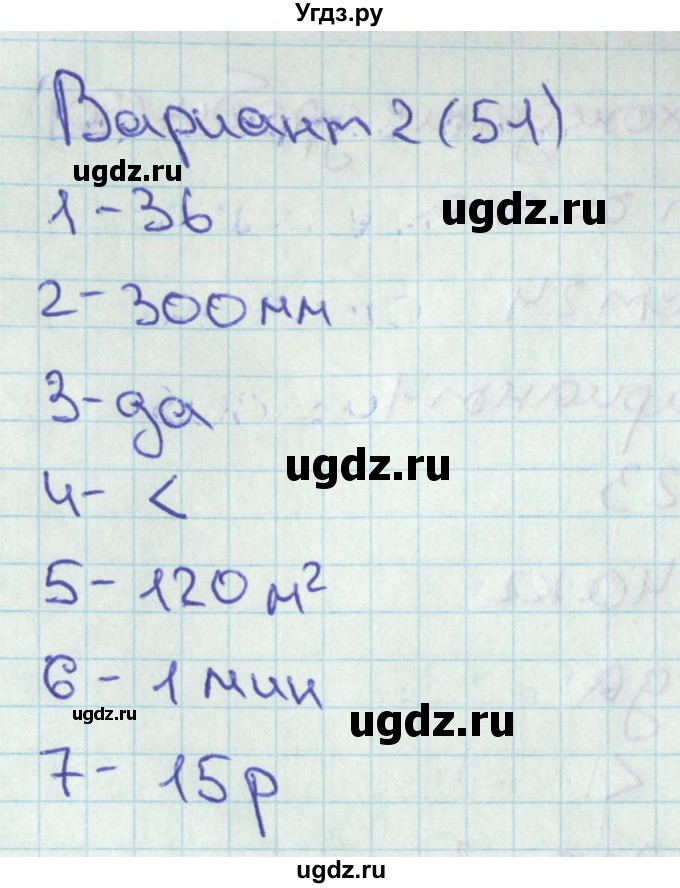 Угдз.ру
Вариант 2 (51)
ugdz.ru
1 - 36
ugdz.ru
2 - 300 мм
3 - да
ugdz.ru
4 - <
5 - 120 м²
6 - 1 мин
ugdz.ru
ugdz.ru
7 - 15 р
ugdz.ru